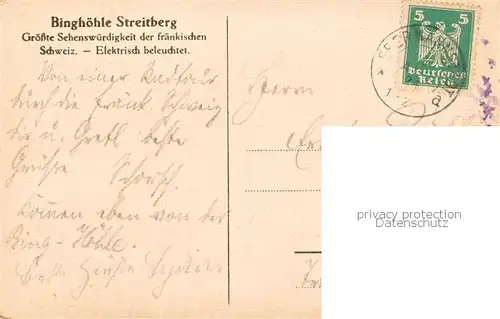 Binghöhle Streitberg
Größte Sehenswürdigkeit der fränkischen
Schweiz. — Elektrisch beleuchtet.
5 5
Deutsches
Reich
Von einer Radtour
durch die Fränk. Schweiz
dir u. Gretl beste
Grüße Schorsch
Kommen eben von der
Bing-Höhle.
Beste Grüße
Herrn
privacy protection
Datenschutz